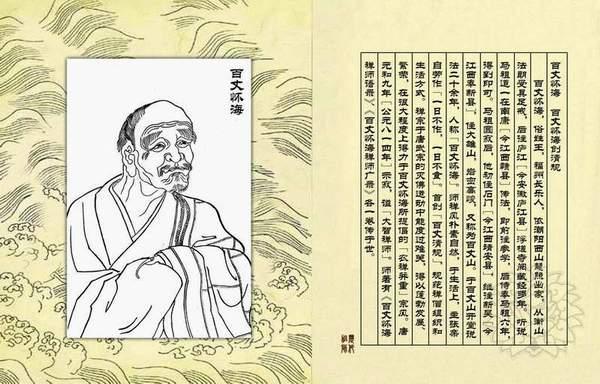 百丈怀海
百丈怀海　百丈怀海创清规
百丈怀海，俗姓王，福州长乐人，依潮阳西山慧照出家，从衡山
法朝受具足戒，后往庐江「今安徽庐江县」浮槎寺阅藏经多年，听说
马祖道一在南康「今江西赣县」传法，即前往参学，后侍奉马祖六年，
得到印可。马祖圆寂后，他初住石门「今江西靖安县」，继往新吴「今
江西奉新县」，住大雄山，岩峦高峻，又称为百丈山。于百丈山开堂说
法二十余年，人称「百丈怀海」。师禅风朴素自然，于生活上，主张亲
自劳作「一日不作，一日不食」。首创「百丈清规」，规范禅僧组织和
生活方式。禅宗于唐武宗的灭佛运动中能度过难关，得以蓬勃发展、
繁荣，在很大程度上得力于百丈怀海所提倡的「农禅并重」宗风。唐
元和九年「公元八一四年」示寂，谥「大智禅师」，师著有《百丈怀海
禅师语录》、《百丈怀海禅师广录》各一卷传于世。